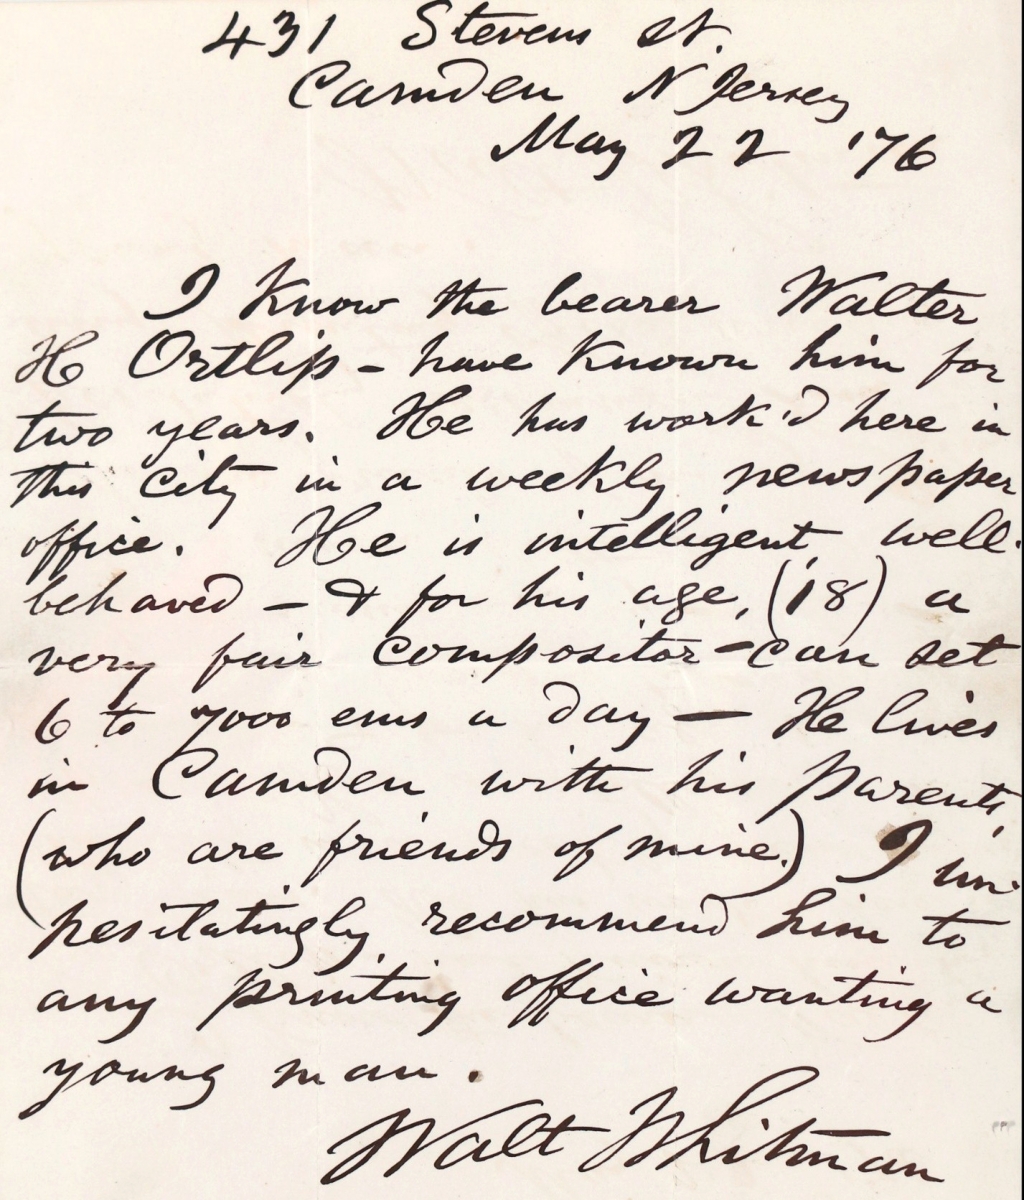 431 Stevens st.
Camden N Jersey
May 22 '76
I know the bearer Walter
H Ortlip - have known him for
two years. He has work'd here in
this city in a weekly newspaper
office. He is intelligent, well-
behaved - & for his age, (18) a
very fair compositor - can set
6 to 7000 ems a day — He lives
in Camden with his parents,
(who are friends of mine.) I un-
hesitatingly recommend him to
any printing office wanting a
young man.
Walt Whitman